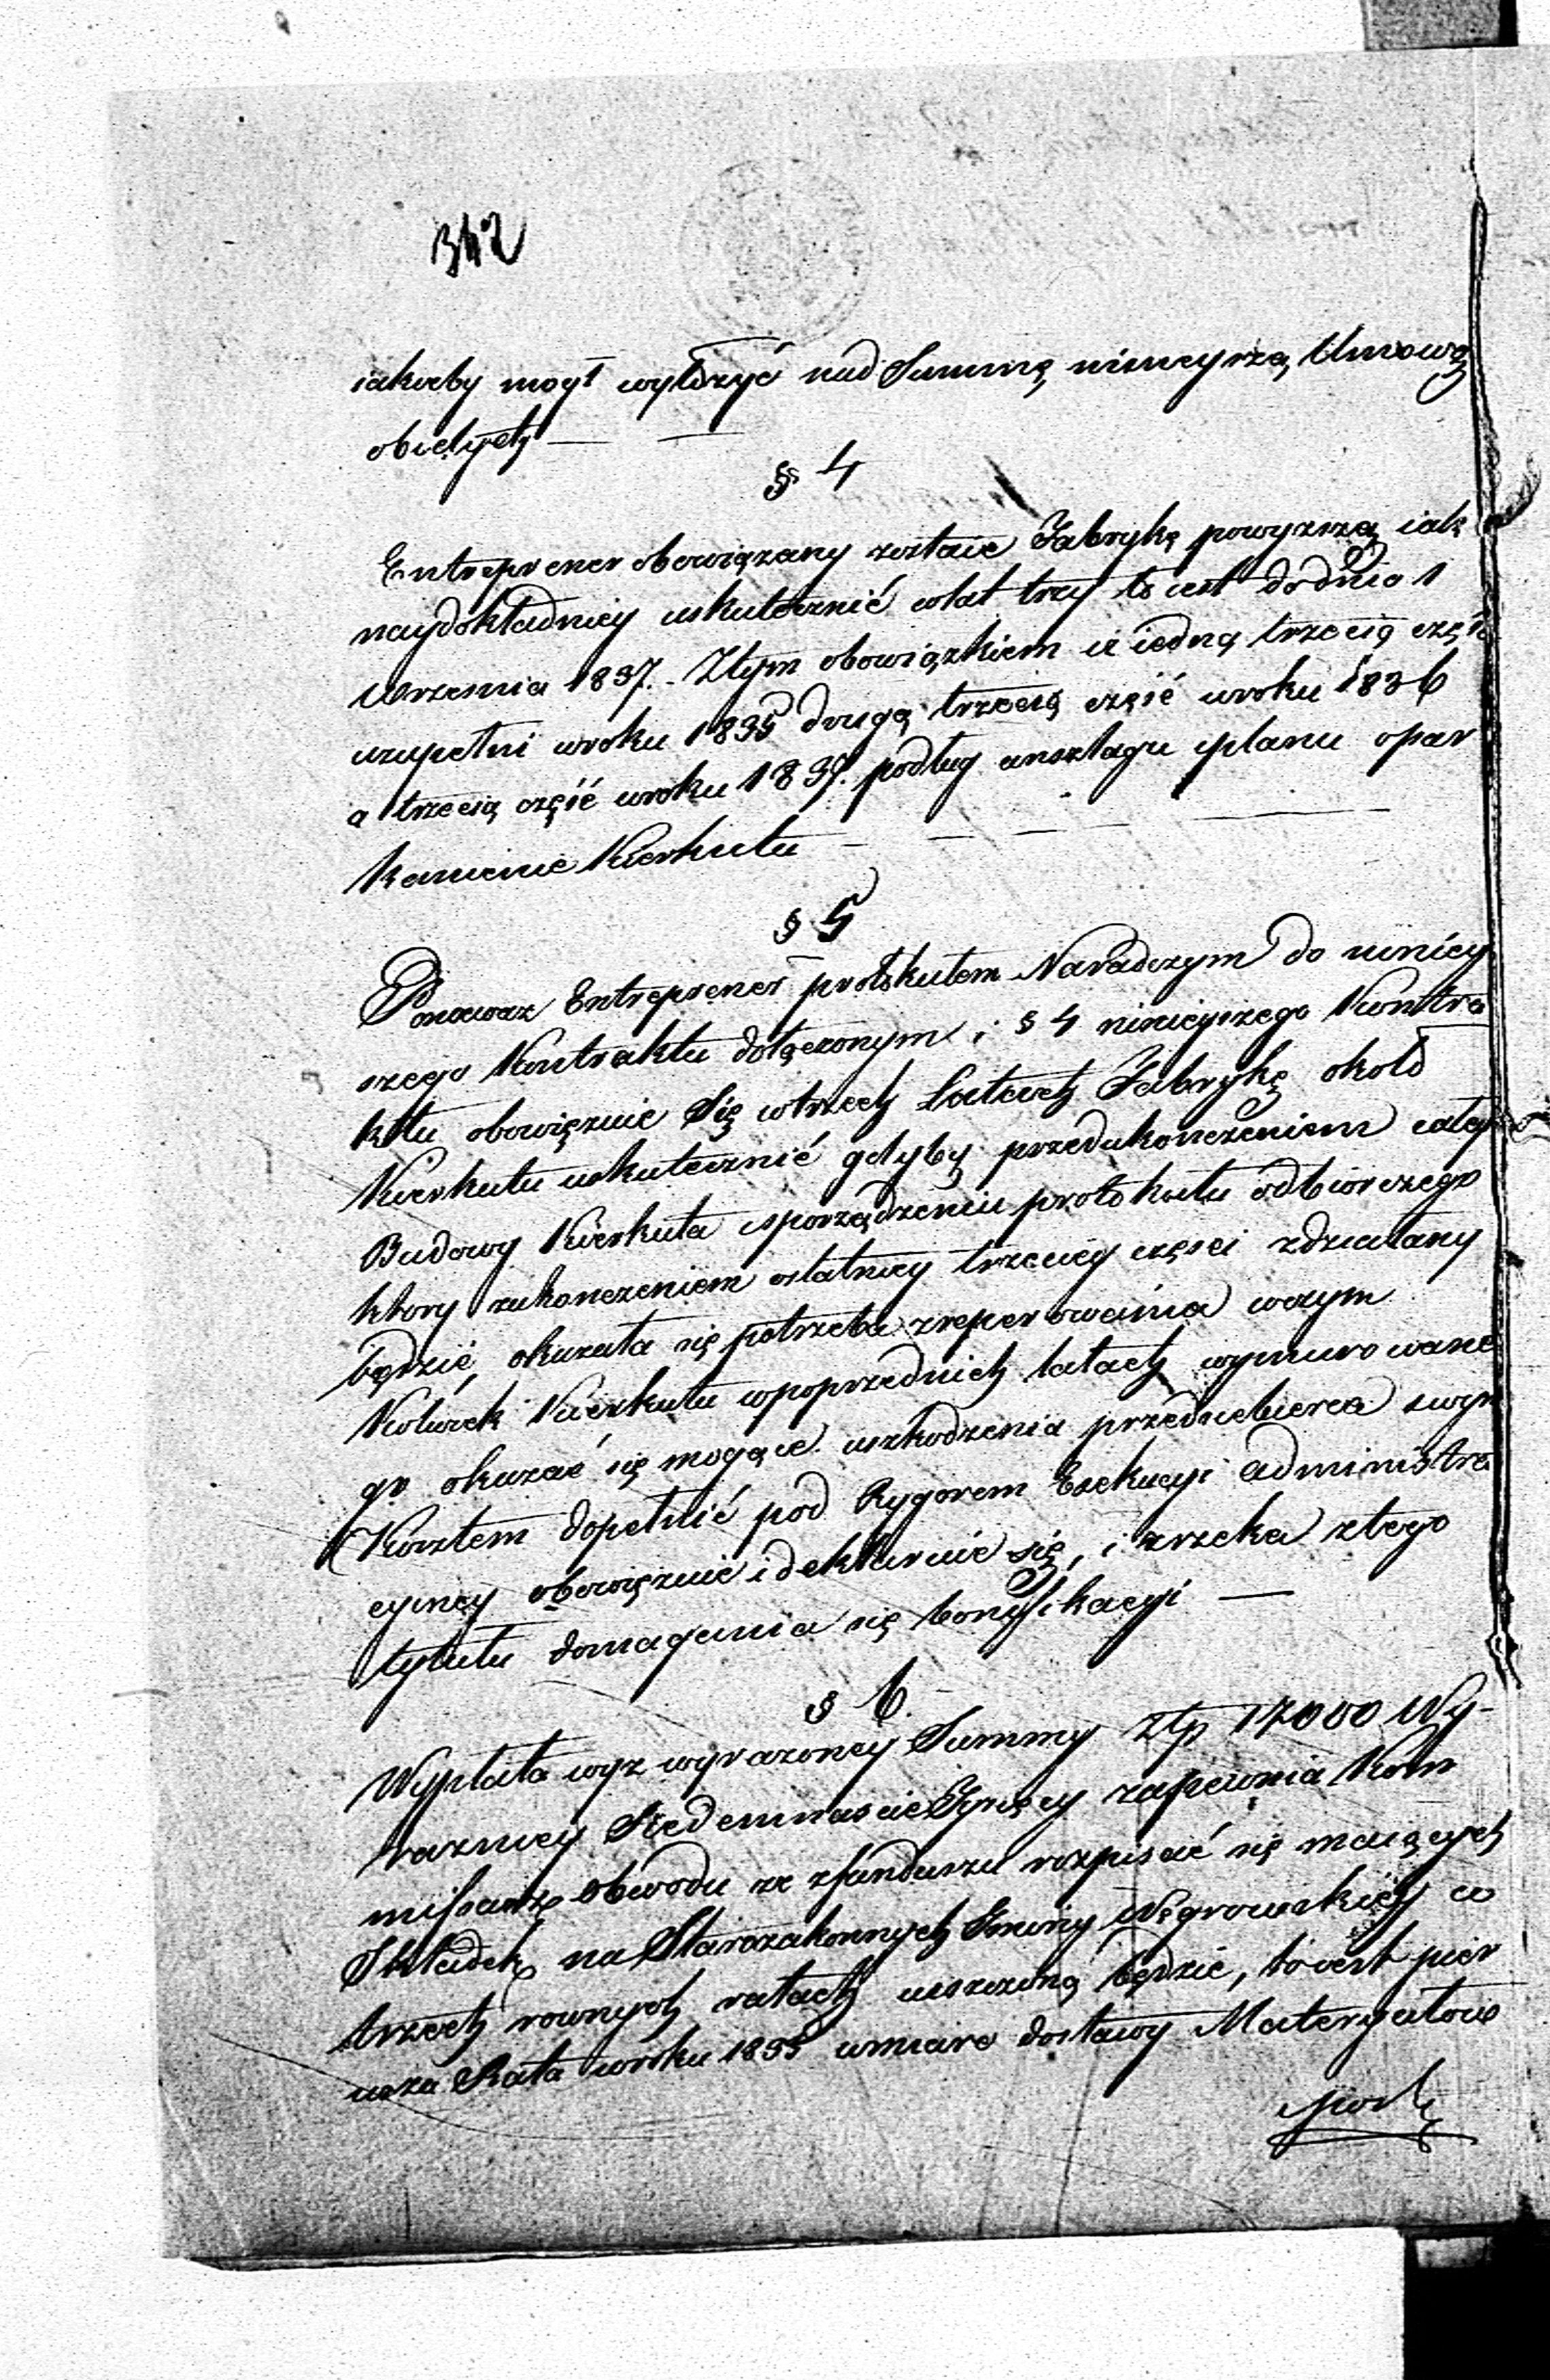 342
iakieby mógł wyłożyć nad Summę ninieyszą Umową
obiętych — —
§ 4
Entreprener obowiązany zostaie Fabrykę powyzszą iak
naydokładniey uskutecznić wlat trzy to iest do dnia 1
Września 1837. Ztym obowiązkiem iż iedną trzecią część
uzupełni wroku 1835 drugą trzecią część wroku 1836
a trzecią część wroku 1837. podług anszlagu yplanu opar
kanienie Kierkutu —
§ 5
Ponieważ Entreprener protokułem Naradczym do niniey
szego Kontraktu dołączonym i § 4 ninieyszego Kontra
ktu obowięzuie Się wtrzech Latach Fabrykę około
Kierkutu uskutecznić gdyby przedukończeniem całey
Budowy Kierkuta isporządzeniu protokułu odbiorczego
ktory zukonczeniem ostatniey trzeciey części zdziałany
będzie, okazała się potrzeba zreperowania wczym
Kolwiek Kierkutu wpoprzednich latach wymurowane
go okazać się mogące uszkodzenia przedsiebierca swym
Kosztem dopełnić pod Rygorem Exekucyi administra
cyiney obowięzuie i deklaruie się, i zrzeka ztego
tytułu domagania się bonyfikacyi —
§ 6
Wypłata wyz wyrazoney Summy Złp 17000 Wy-
razniey Siedemnaście Tysięcy zapewnia Kom
missarz Obwodu ze zfunduszu rozpisać się maiących
Składek na Starozakonnych Gminy Węgrowskiey w
trzech rownych ratach uiszczoną będzie, to iest pier
wsza Rata wroku 1835 wmiarę dostawy Materyałow